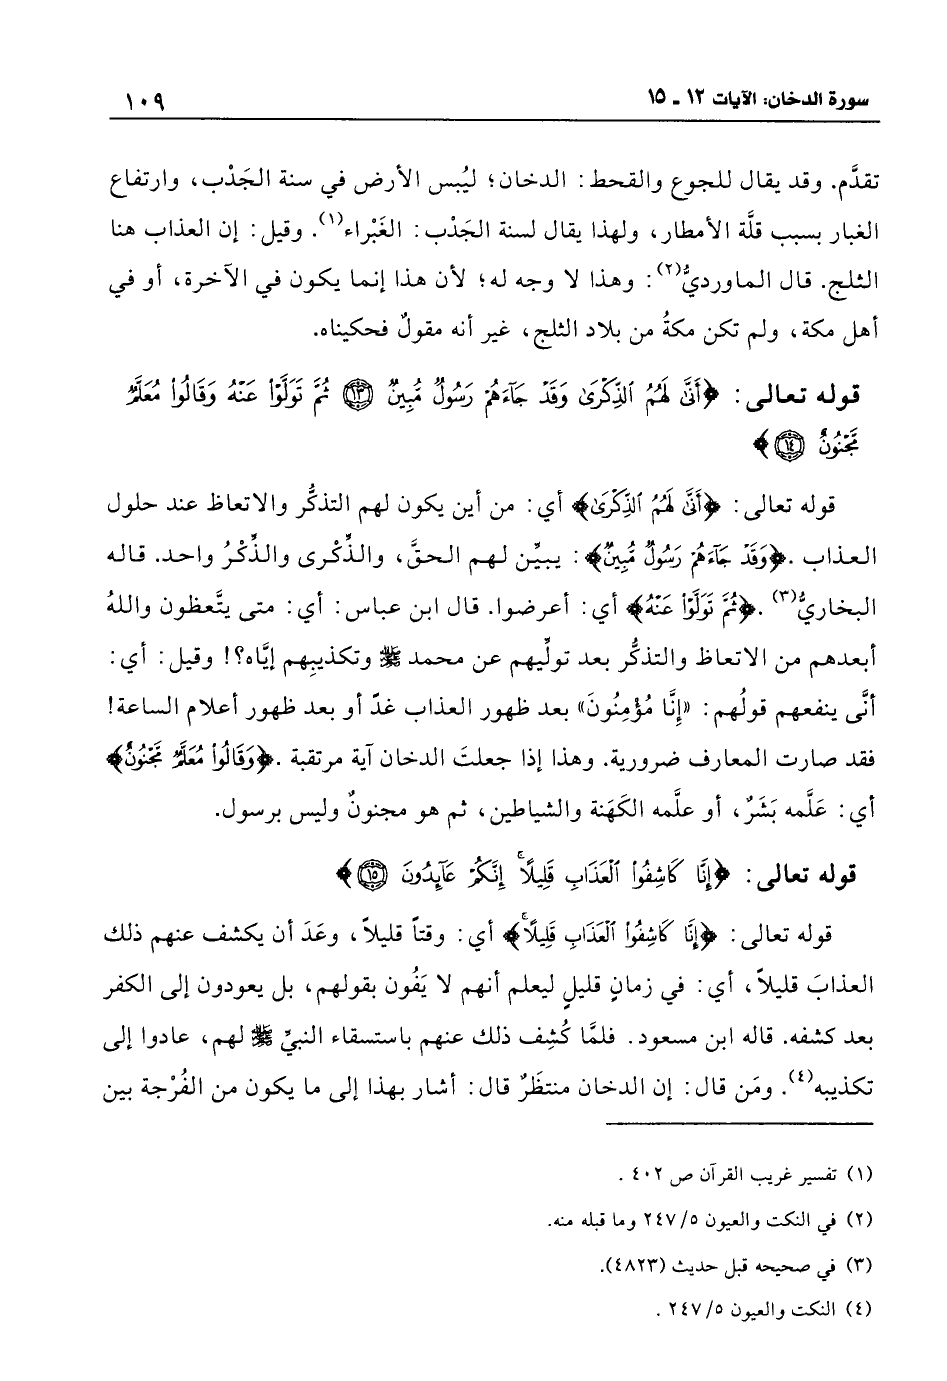 سورة الدخان: الآيات ١٢ ـ ١٥
١٠٩
تقدَّم. وقد يقال للجوع والقحط: الدخان؛ ليُبس الأرض في سنة الجَدْب، وارتفاع
الغبار بسبب قلَّة الأمطار، ولهذا يقال لسنة الجَدْب: الغَبْراء(١). وقيل: إن العذاب هنا
الثلج. قال الماورديُّ(٢): وهذا لا وجه له؛ لأن هذا إنما يكون في الآخرة، أو في
أهل مكة، ولم تكن مكةُ من بلاد الثلج، غير أنه مقولٌ فحكيناه.
قوله تعالى: ﴿أَنَّىٰ لَهُمُ ٱلذِّكْرَىٰ وَقَدْ جَآءَهُمْ رَسُولٌ مُّبِينٌ ١٣ ثُمَّ تَوَلَّوْا۟ عَنْهُ وَقَالُوا۟ مُعَلَّمٌ
مَّجْنُونٌ ١٤﴾
قوله تعالى: ﴿أَنَّىٰ لَهُمُ ٱلذِّكْرَىٰ﴾ أي: من أين يكون لهم التذكُّر والاتعاظ عند حلول
العذاب. ﴿وَقَدْ جَآءَهُمْ رَسُولٌ مُّبِينٌ﴾: يبيِّن لهم الحقَّ، والذِّكرى والذِّكْرُ واحد. قاله
البخاريُّ(٣). ﴿ثُمَّ تَوَلَّوْا۟ عَنْهُ﴾ أي: أعرضوا. قال ابن عباس: أي: متى يتَّعظون واللهُ
أبعدهم من الاتعاظ والتذكُّر بعد تولِّيهم عن محمد ﷺ وتكذيبِهم إيَّاه؟! وقيل: أي:
أنَّى ينفعهم قولُهم: «إِنَّا مُؤْمِنُونَ» بعد ظهور العذاب غدّاً أو بعد ظهور أعلام الساعة!
فقد صارت المعارف ضرورية. وهذا إذا جعلتَ الدخان آية مرتقبة. ﴿وَقَالُوا۟ مُعَلَّمٌ مَّجْنُونٌ﴾
أي: عَلَّمه بَشَرٌ، أو علَّمه الكَهَنة والشياطين، ثم هو مجنونٌ وليس برسول.
قوله تعالى: ﴿إِنَّا كَاشِفُوا۟ ٱلْعَذَابِ قَلِيلًا ۚ إِنَّكُمْ عَآئِدُونَ ١٥﴾
قوله تعالى: ﴿إِنَّا كَاشِفُوا۟ ٱلْعَذَابِ قَلِيلًا ۚ﴾ أي: وقتاً قليلاً، وعَدَ أن يكشف عنهم ذلك
العذابَ قليلاً، أي: في زمانٍ قليلٍ ليعلم أنهم لا يَفُون بقولهم، بل يعودون إلى الكفر
بعد كشفه. قاله ابن مسعود. فلمَّا كُشِف ذلك عنهم باستسقاء النبيِّ ﷺ لهم، عادوا إلى
تكذيبه(٤). ومَن قال: إن الدخان منتظَرٌ قال: أشار بهذا إلى ما يكون من الفُرْجة بين
(١) تفسير غريب القرآن ص ٤٠٢ .
(٢) في النكت والعيون ٥/ ٢٤٧ وما قبله منه.
(٣) في صحيحه قبل حديث (٤٨٢٣).
(٤) النكت والعيون ٥/ ٢٤٧ .